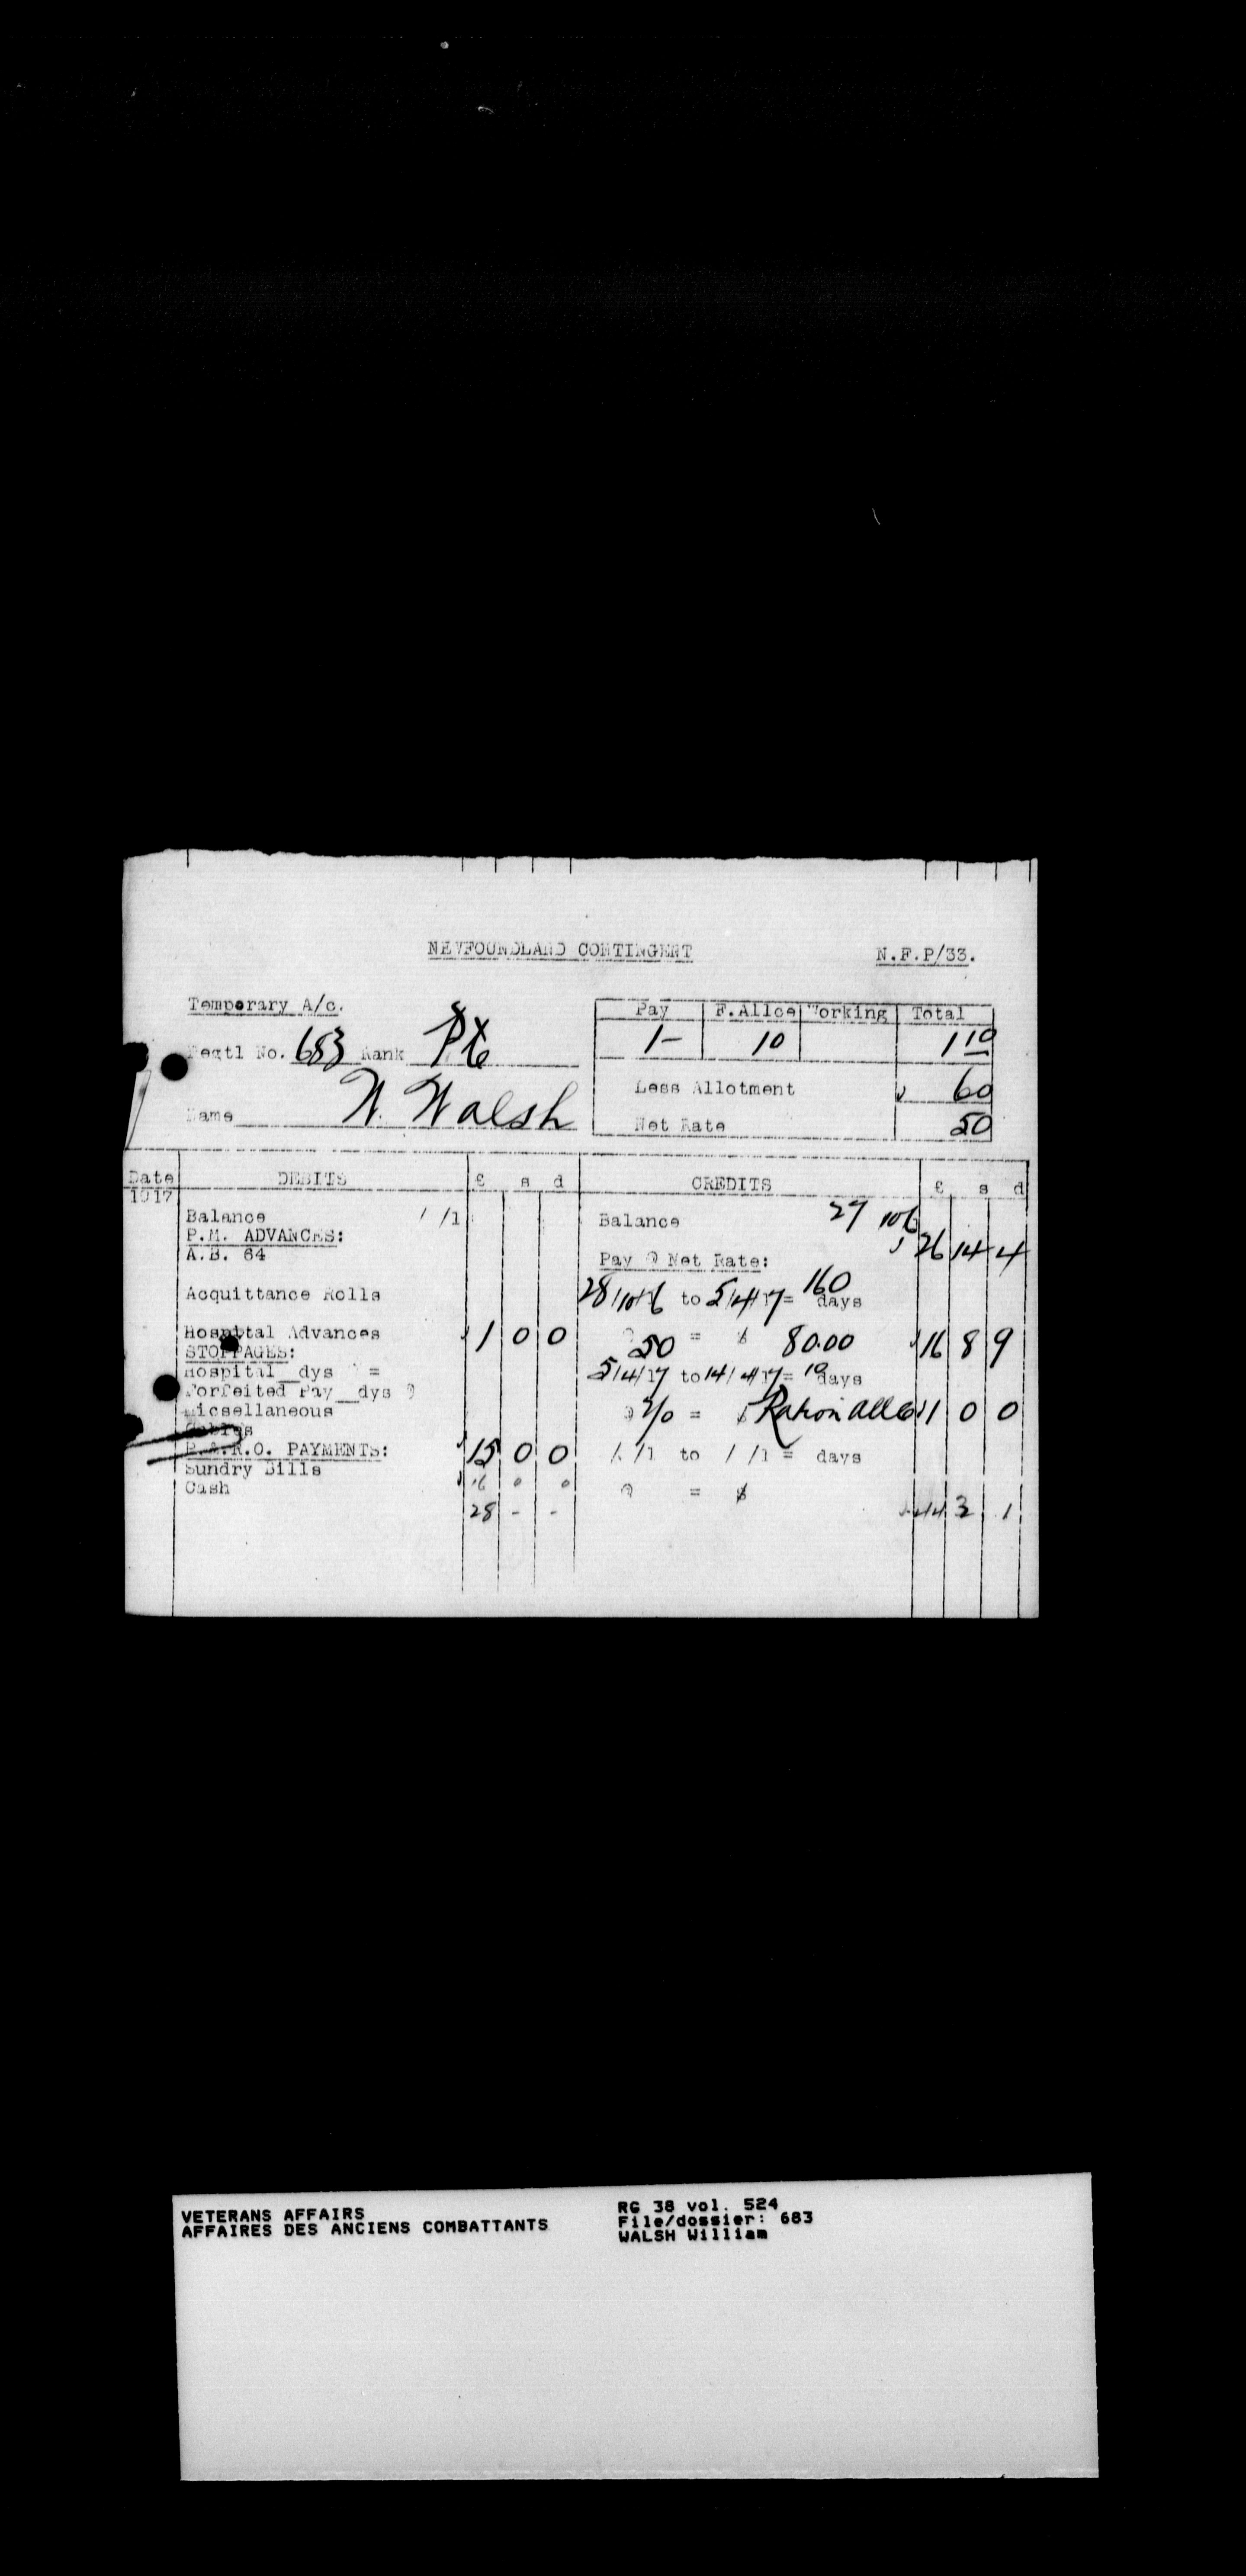 NEWFOUNDLAND CONTINGENT N.F.P/33.
Temporary A/c.
Pay F.Allce Working Total
Regtl No. 683 Rank Pte 1- 10 1 10
Less Allotment 60
Name W. Walsh
Net Rate 50
Date DEBITS £ s d CREDITS £ s d
1917
Balance / /1 Balance 27 10 6
P.M. ADVANCES: 26 14 4
A.B. 64 Pay @ Net Rate:
Acquittance Rolls 28/10/16 to 5/4/17= 160 days
Hospital Advances 1 0 0 @ 50 = $ 80.00 16 8 9
STOPPAGES:
Hospital__dys = 5/4/17 to 14/4/17= 10 days
Forfeited Pay__dys @
Micsellaneous @ 2/0 = $ Ration Allce 1 0 0
Cables
P.&.R.O. PAYMENTS: 15 0 0 / /1 to / /1 = days
Sundry Bills
Cash @ = $
28 - - 44 3 1
VETERANS AFFAIRS RG 38 vol. 524
AFFAIRES DES ANCIENS COMBATTANTS File/dossier: 683
WALSH William